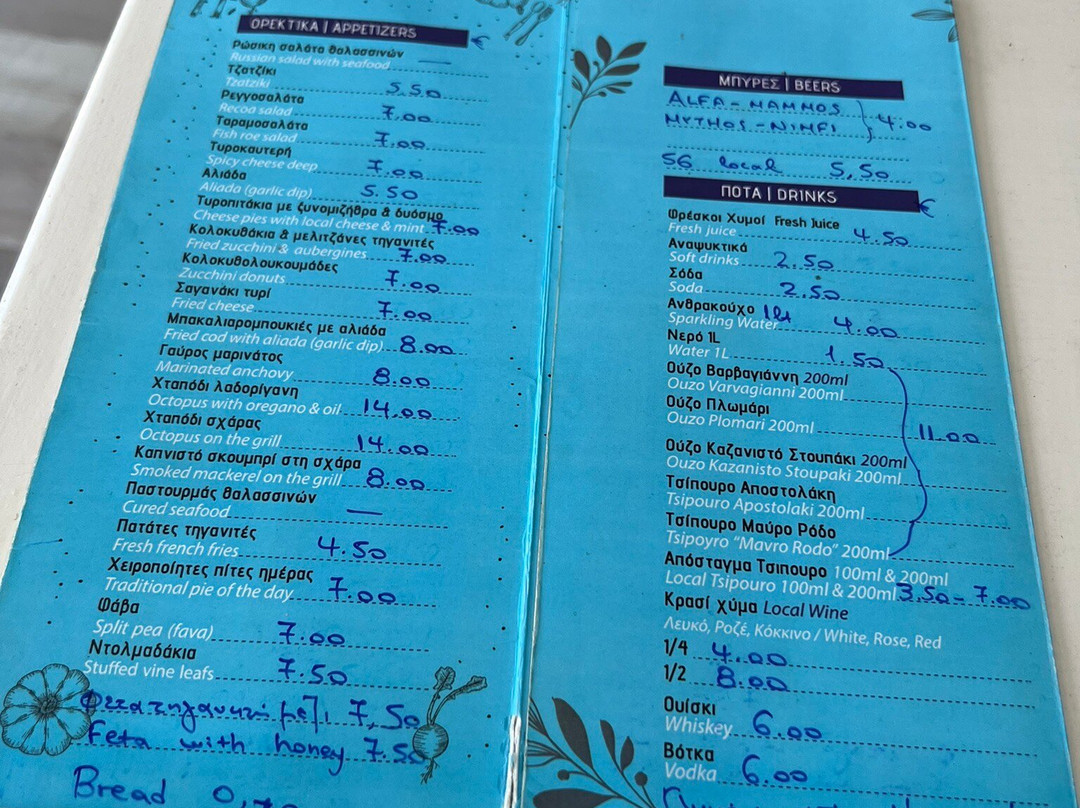 ΟΡΕΚΤΙΚΑ | APPETIZERS €
Ρώσικη σαλάτα θαλασσινών
Russian salad with seafood —
Τζατζίκι
Tzatziki 5.50
Ρεγγοσαλάτα
Recoa salad 7.00
Ταραμοσαλάτα
Fish roe salad 7.00
Τυροκαυτερή
Spicy cheese deep 7.00
Αλιάδα
Aliada (garlic dip) 5.50
Τυροπιτάκια με ξυνομιζήθρα & δυόσμο
Cheese pies with local cheese & mint 7.00
Κολοκυθάκια & μελιτζάνες τηγανιτές
Fried zucchini & aubergines 7.00
Κολοκυθολουκουμάδες
Zucchini donuts 7.00
Σαγανάκι τυρί
Fried cheese 7.00
Μπακαλιαρομπουκιές με αλιάδα
Fried cod with aliada (garlic dip) 8.00
Γαύρος μαρινάτος
Marinated anchovy 8.00
Χταπόδι λαδορίγανη
Octopus with oregano & oil 14.00
Χταπόδι σχάρας
Octopus on the grill 14.00
Καπνιστό σκουμπρί στη σχάρα
Smoked mackerel on the grill 8.00
Παστουρμάς θαλασσινών
Cured seafood —
Πατάτες τηγανιτές
Fresh french fries 4.50
Χειροποίητες πίτες ημέρας
Traditional pie of the day 7.00
Φάβα
Split pea (fava) 7.00
Ντολμαδάκια
Stuffed vine leafs 7.50
7,50
Feta with honey 7.50
Bread
ΜΠΥΡΕΣ | BEERS
ALFA - MAMMOS
MYTHOS - NIMFI 4.00
56 local 5,50
ΠΟΤΑ | DRINKS €
Φρέσκοι Χυμοί Fresh Juice
Fresh juice 4.50
Αναψυκτικά
Soft drinks 2.50
Σόδα
Soda 2.50
Ανθρακούχο 1lt
Sparkling Water 4.00
Νερό 1L
Water 1L 1.50
Ούζο Βαρβαγιάννη 200ml
Ouzo Varvagianni 200ml
Ούζο Πλωμάρι
Ouzo Plomari 200ml 11.00
Ούζο Καζανιστό Στουπάκι 200ml
Ouzo Kazanisto Stoupaki 200ml
Τσίπουρο Αποστολάκη
Tsipouro Apostolaki 200ml
Τσίπουρο Μαύρο Ρόδο
Tsipoyro "Mavro Rodo" 200ml
Απόσταγμα Τσιπουρο 100ml & 200ml
Local Tsipouro 100ml & 200ml 3.50 - 7.00
Κρασί χύμα Local Wine
Λευκό, Ροζέ, Κόκκινο / White, Rose, Red
1/4 4.00
1/2 8.00
Ουίσκι
Whiskey 6.00
Βότκα
Vodka 6.00